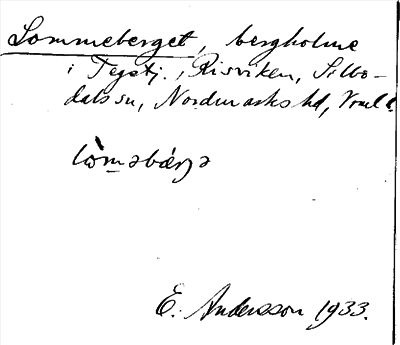 Lommeberget, bergholme
i Tegstj., Risviken, Silbo-
dals sn, Nordmarks hd, Vrml.
lòmǝbárjǝ
E. Andersson 1933.